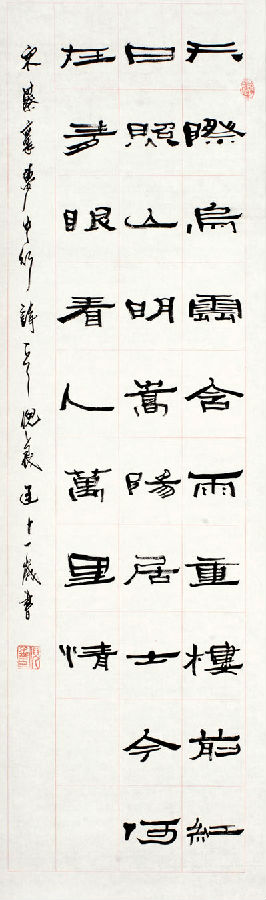 天際烏雲含雨重樓前紅
日照山明嵩陽居士今何
在青眼看人萬里情
宋蔡襄夢中作詩一首 十一歲書